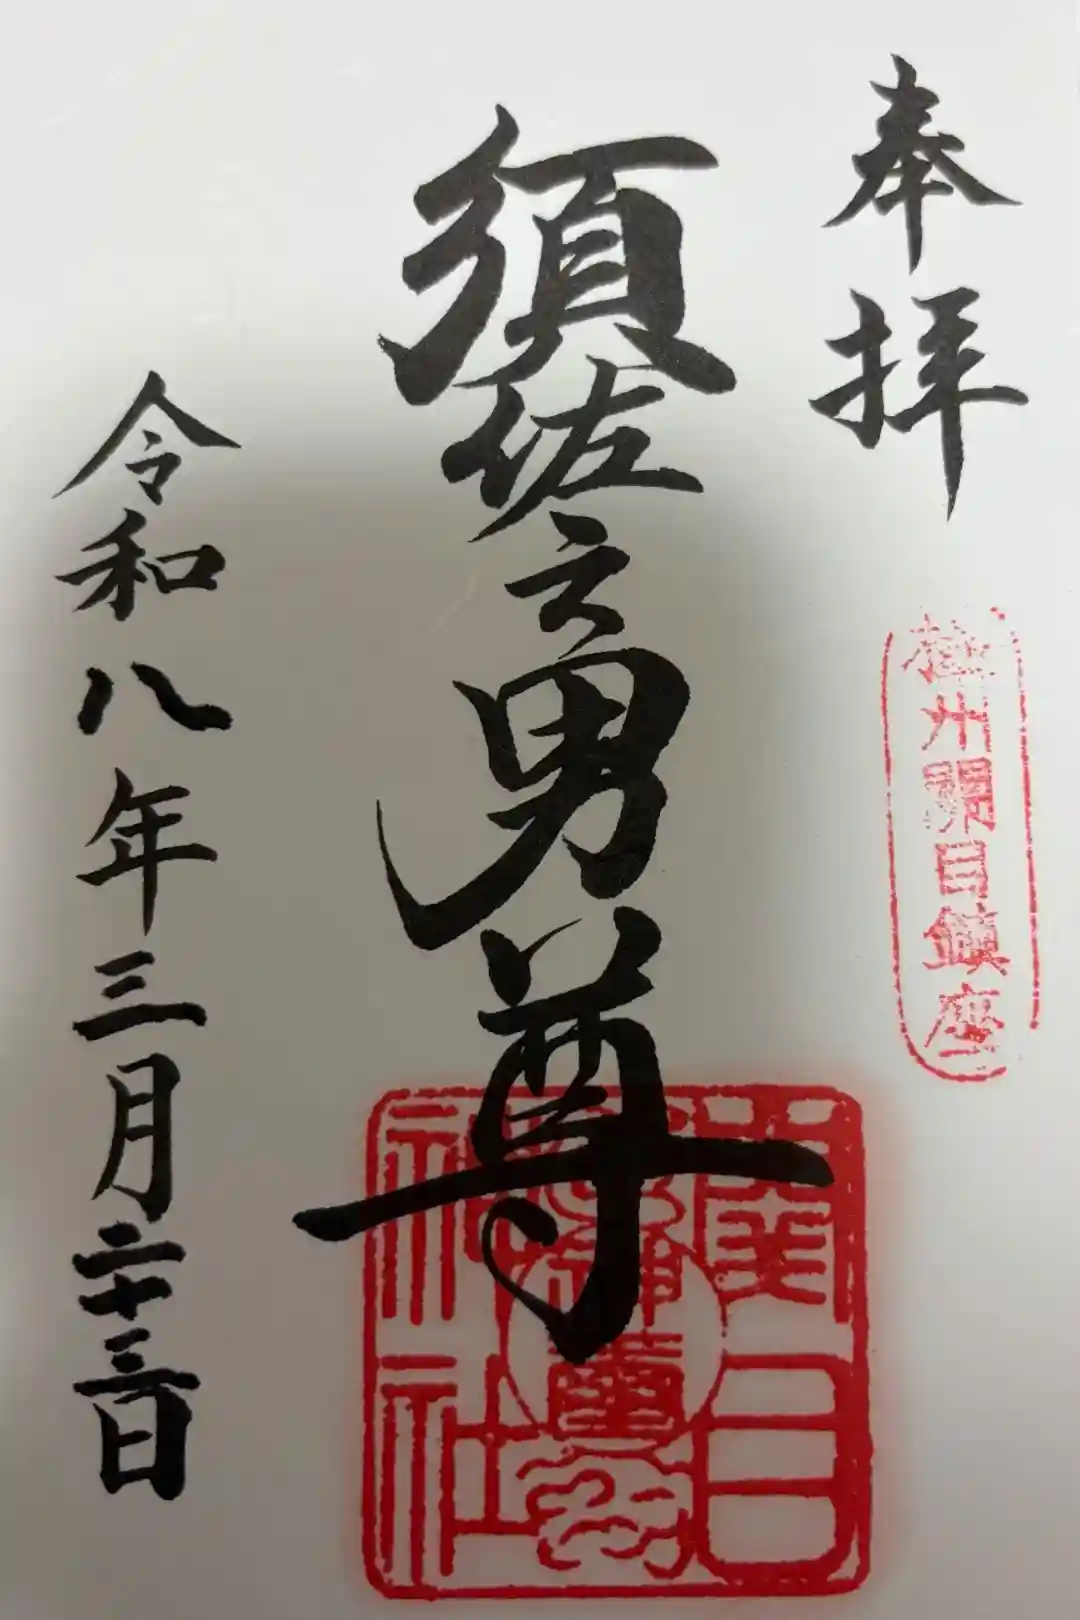 奉拝
播州開目鎮座
須佐之男尊
開目神社
令和八年三月二十三日